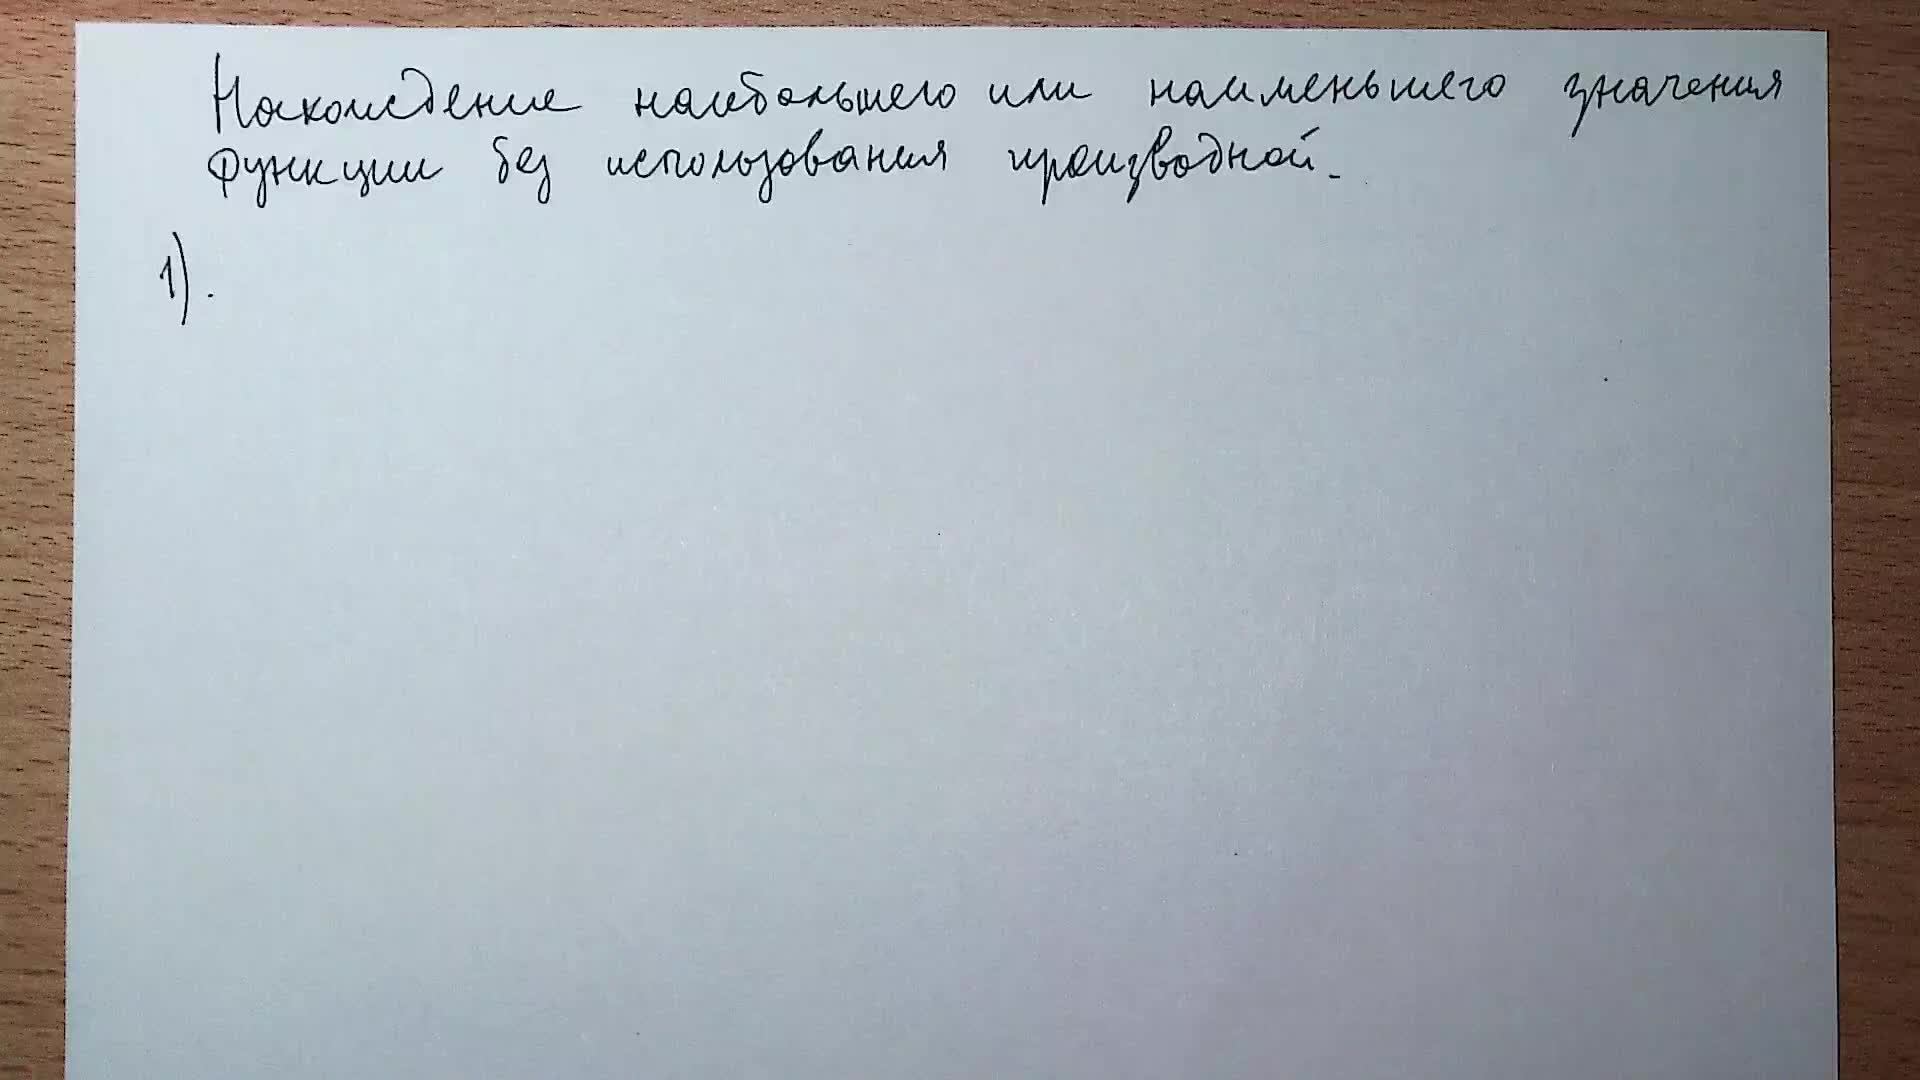 Нахождение наибольшего или наименьшего значения
функции без использования производной.
1).